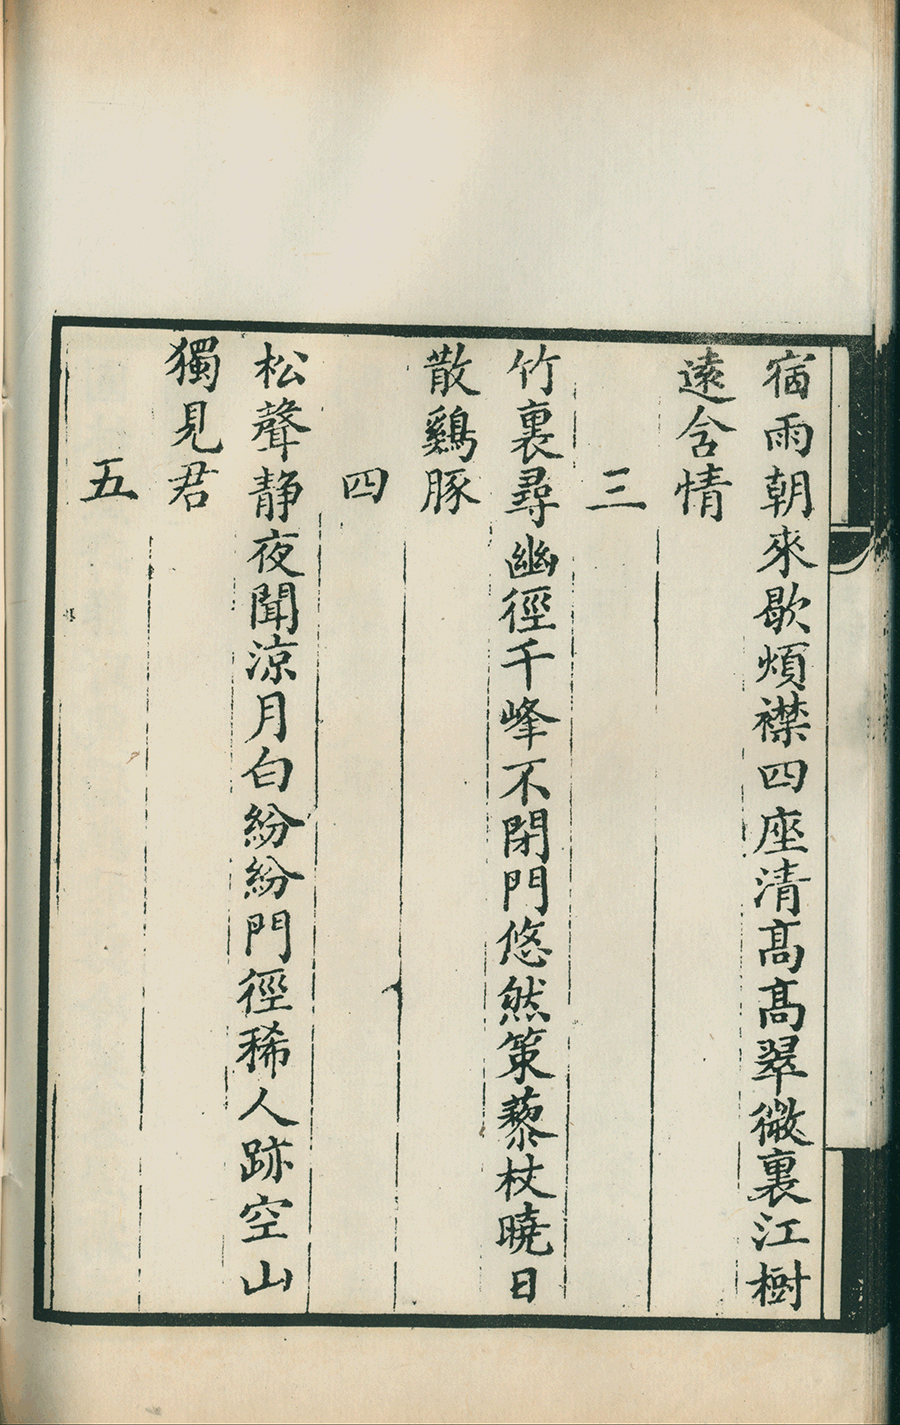 宿雨朝來歇煩襟四座清髙髙翠微裏江樹
遠含情
三
竹裏尋幽徑千峰不閉門悠然策藜杖曉日
散鷄豚
四
松聲静夜聞涼月白紛紛門徑稀人跡空山
獨見君
五